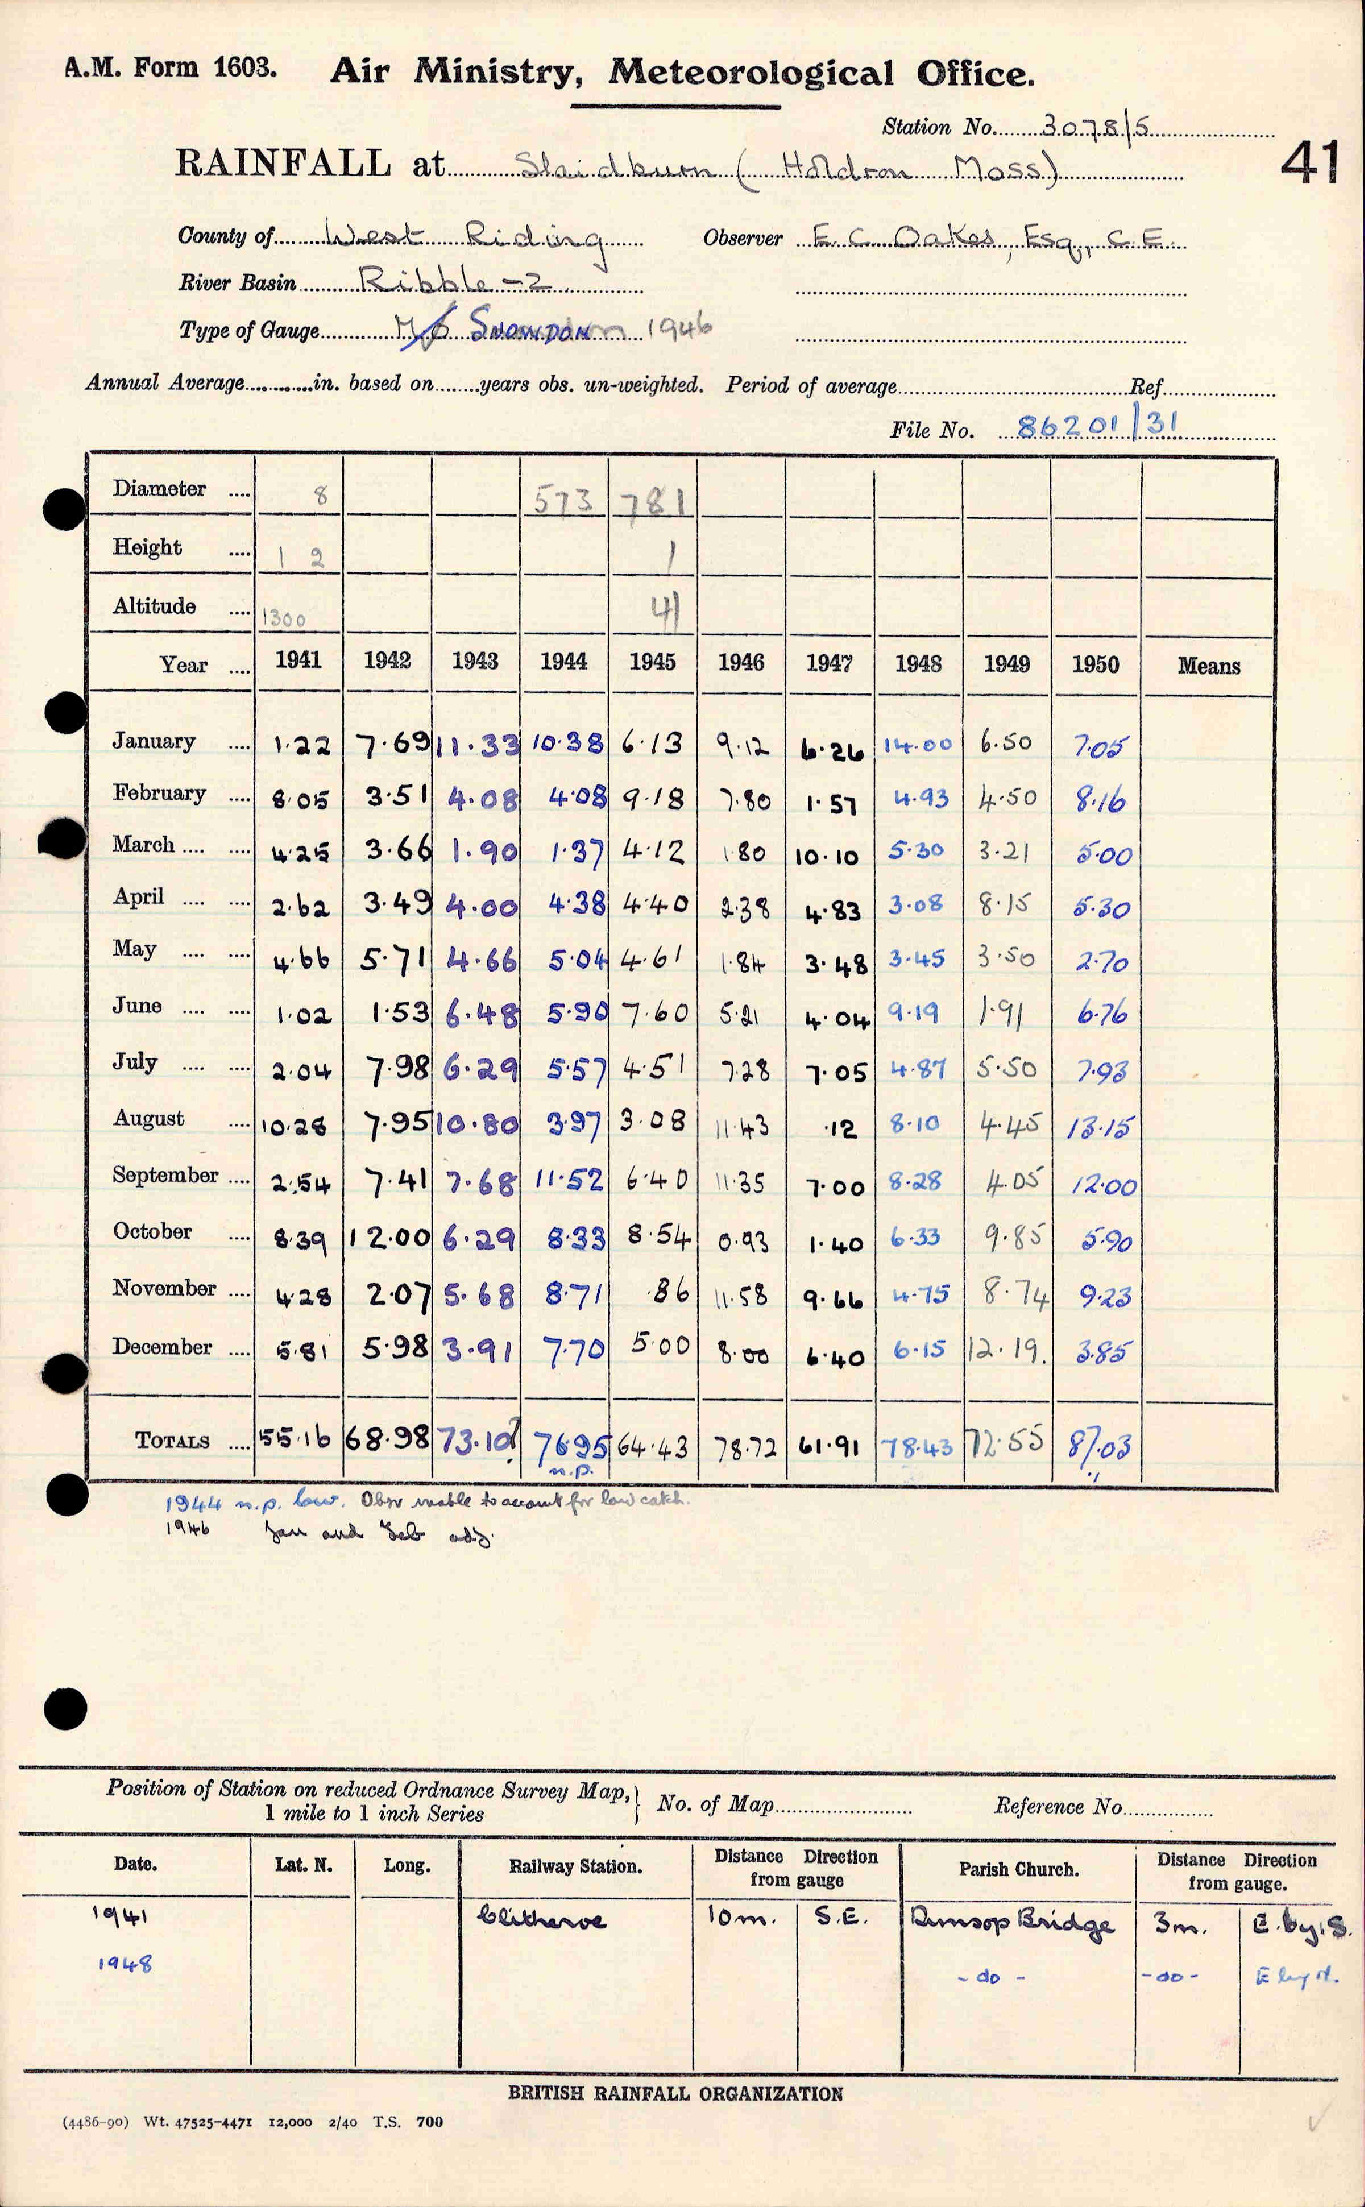 A.M. Form 1603. Air Ministry, Meteorological Office.
Station No. 3078/5
41
RAINFALL at Slaidburn (Holdron Moss)
County of West Riding Observer E. C. Oakes, Esq., C.E.
River Basin Ribble-2
Type of Gauge SNOWDON 1946
Annual Average in. based on years obs. un-weighted. Period of average Ref.
File No. 86201/31
Diameter 8 573 781
Height 1 2 1
Altitude 1300 41
Year 1941 1942 1943 1944 1945 1946 1947 1948 1949 1950 Means
January 1.22 7.69 11.33 10.38 6.13 9.12 6.26 14.00 6.50 7.05
February 8.05 3.51 4.08 4.08 9.18 7.80 1.57 4.93 4.50 8.16
March 4.25 3.66 1.90 1.37 4.12 1.80 10.10 5.30 3.21 5.00
April 2.62 3.49 4.00 4.38 4.40 2.38 4.83 3.08 8.15 5.30
May 4.66 5.71 4.66 5.04 4.61 1.84 3.48 3.45 3.50 2.70
June 1.02 1.53 6.48 5.90 7.60 5.21 4.04 9.19 1.91 6.76
July 2.04 7.98 6.29 5.57 4.51 7.28 7.05 4.87 5.50 7.93
August 10.28 7.95 10.80 3.97 3.08 11.43 .12 8.10 4.45 13.15
September 2.54 7.41 7.68 11.52 6.40 11.35 7.00 8.28 4.05 12.00
October 8.39 12.00 6.29 8.33 8.54 0.93 1.40 6.33 9.85 5.90
November 4.28 2.07 5.68 8.71 .86 11.58 9.66 4.75 8.74 9.23
December 5.81 5.98 3.91 7.70 5.00 8.00 6.40 6.15 12.19. 3.85
TOTALS 55.16 68.98 73.10? 76.95 64.43 78.72 61.91 78.43 72.55 87.03
n.p.
1944 n.p. low. Obsr unable to account for low catch.
1946 Jan and Feb adj.
Position of Station on reduced Ordnance Survey Map, 1 mile to 1 inch Series } No. of Map Reference No.
Date. Lat. N. Long. Railway Station. Distance Direction from gauge Parish Church. Distance Direction from gauge.
1941 Clitheroe 10m. S.E. Dunsop Bridge 3m. E. by. S.
1948 - do - - do - E by N.
BRITISH RAINFALL ORGANIZATION
(4486-90) Wt. 47525-4471 12,000 2/40 T.S. 700